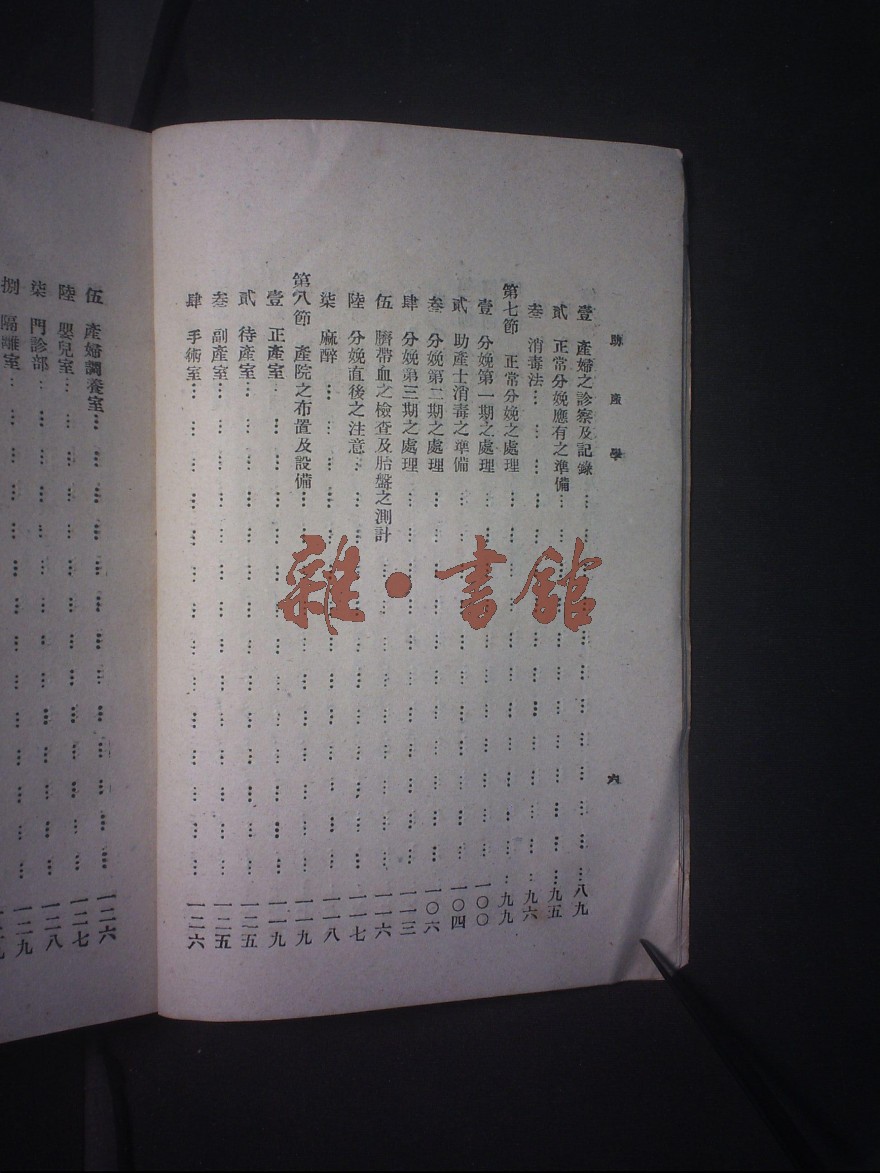 助產學
六
壹 產婦之診察及記錄 … 八九
貳 正常分娩應有之準備 … 九五
叁 消毒法 … 九六
第七節 正常分娩之處理 … 九九
壹 分娩第一期之處理 … 一〇〇
貳 助產士消毒之準備 … 一〇四
叁 分娩第二期之處理 … 一〇六
肆 分娩第三期之處理 … 一一三
伍 臍帶血之檢查及胎盤之測計 … 一一六
陸 分娩直後之注意 … 一一七
柒 麻醉 … 一一八
第八節 產院之布置及設備 … 一一九
壹 正產室 … 一一九
貳 待產室 … 一二五
叁 副產室 … 一二五
肆 手術室 … 一二六
伍 產婦調養室 … 一二六
陸 嬰兒室 … 一二七
柒 門診部 … 一二八
捌 隔離室 … 一二九
雜·書館